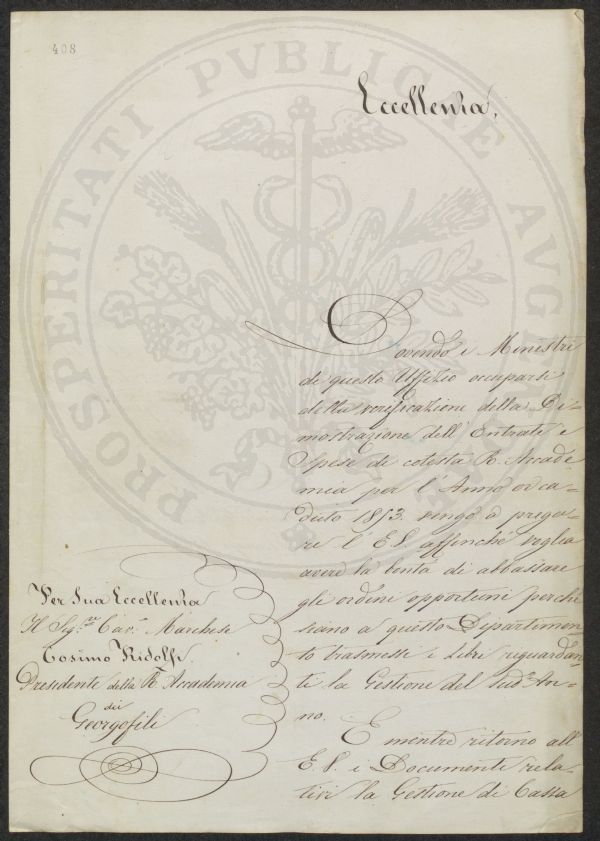 408
PROSPERITATI PVBLICAE AVGENDAE
Eccellenza,
Dovendo i Ministri
di questo Uffizio occuparsi
della verificazione della Di-
mostrazione dell'Entrate e
Spese di cotesta R. Accade
mia per l'Anno or ca-
duto 1853. vengo a prega-
re l'E.V. affinché voglia
avere la bontà di abbassare
gli ordini opportuni perché
siano a questo Dipartimen
to trasmessi i Libri riguardan
ti la Gestione del sud.º An-
no.
E mentre ritorno all'
E.V. i Documenti rela-
tivi la Gestione di Cassa
Per Sua Eccellenza
Il Sig.re Cav.e Marchese
Cosimo Ridolfi
Presidente della R. Accademia
dei
Georgofili